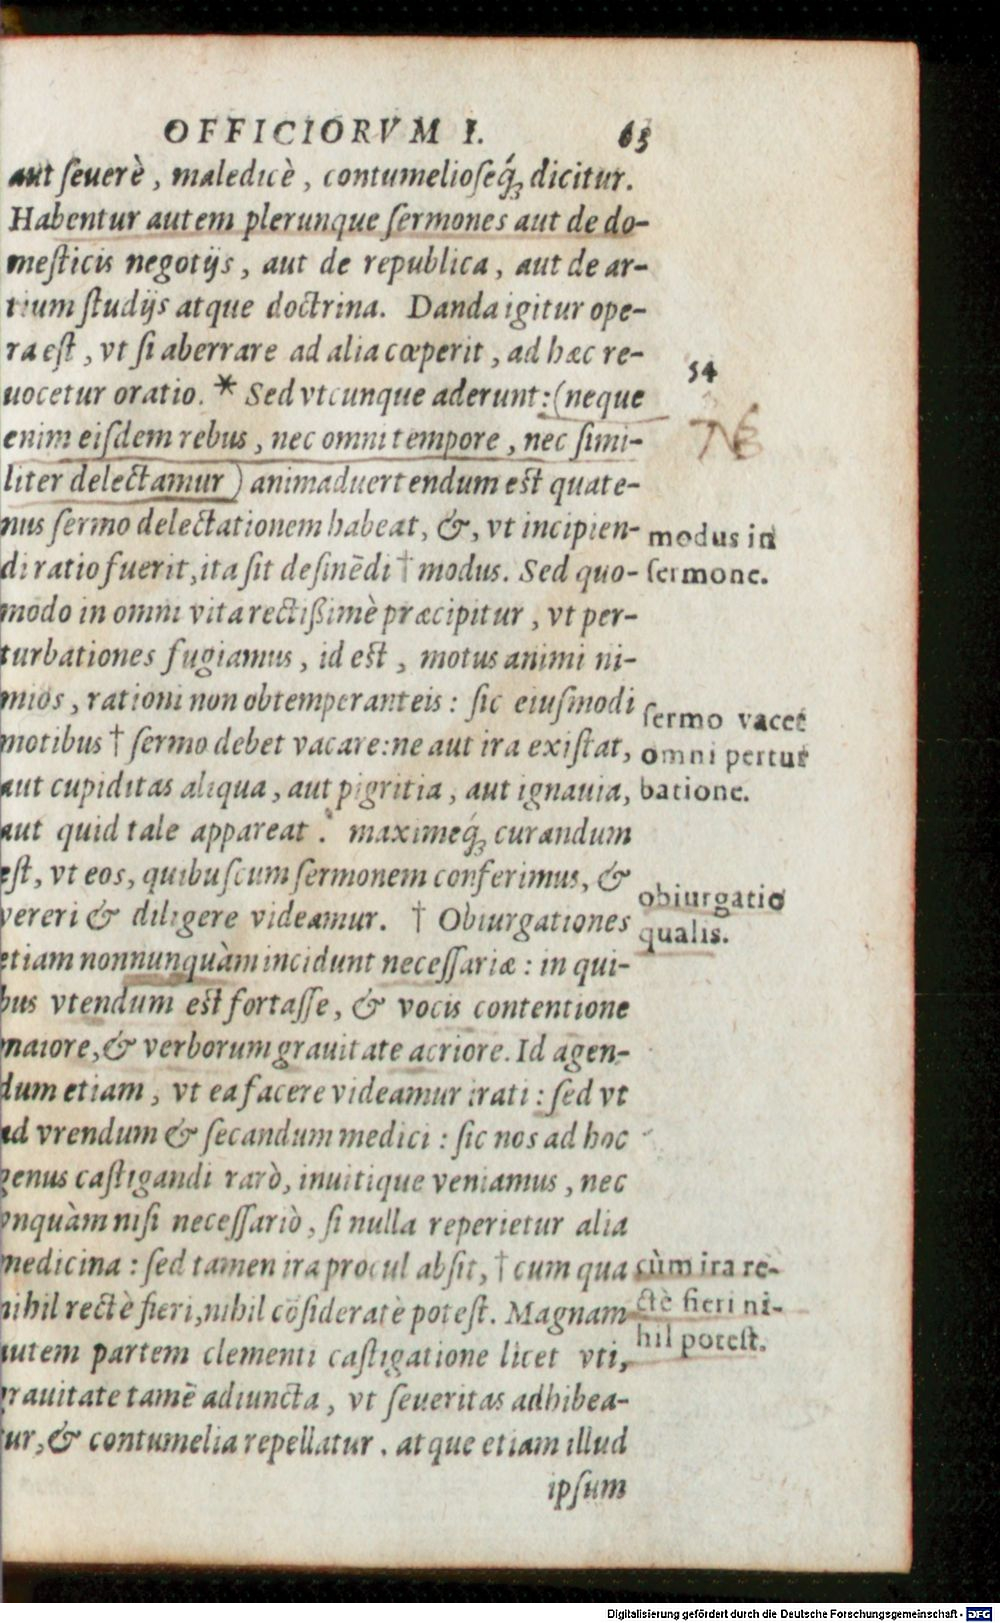 OFFICIORVM I. 63
aut ſeuerè, maledicè, contumelioſeq́; dicitur.
Habentur autem plerunque ſermones aut de do-
meſticis negotijs, aut de republica, aut de ar-
tium ſtudijs atque doctrina. Danda igitur ope-
ra eſt, vt ſi aberrare ad alia cœperit, ad hæc re-
uocetur oratio. * Sed vtcunque aderunt: (neque
54
enim eiſdem rebus, nec omni tempore, nec ſimi-
NB
liter delectamur) animaduertendum eſt quate-
nus ſermo delectationem habeat, &, vt incipien-
modus in
di ratio fuerit, ita ſit deſinẽdi † modus. Sed quo-
ſermone.
modo in omni vita rectißimè præcipitur, vt per-
turbationes fugiamus, id eſt, motus animi ni-
mios, rationi non obtemperanteis: ſic eiuſmodi
ſermo vacet
motibus † ſermo debet vacare: ne aut ira exiſtat,
omni pertur
aut cupiditas aliqua, aut pigritia, aut ignauia,
batione.
aut quid tale appareat. maximeq́; curandum
eſt, vt eos, quibuſcum ſermonem conferimus, &
obiurgatio
vereri & diligere videamur. † Obiurgationes
qualis.
etiam nonnunquàm incidunt neceſſariæ: in qui-
bus vtendum eſt fortaſſe, & vocis contentione
maiore, & verborum grauitate acriore. Id agen-
dum etiam, vt ea facere videamur irati: ſed vt
ad vrendum & ſecandum medici: ſic nos ad hoc
genus caſtigandi rarò, inuitique veniamus, nec
vnquàm niſi neceſſariò, ſi nulla reperietur alia
medicina: ſed tamen ira procul abſit, † cum qua
cùm ira re-
nihil rectè fieri, nihil cõſideratè poteſt. Magnam
ctè fieri ni-
autem partem clementi caſtigatione licet vti,
hil poteſt.
grauitate tamẽ adiuncta, vt ſeueritas adhibea-
tur, & contumelia repellatur. atque etiam illud
ipſum
Digitalisierung gefördert durch die Deutsche Forschungsgemeinschaft - DFG